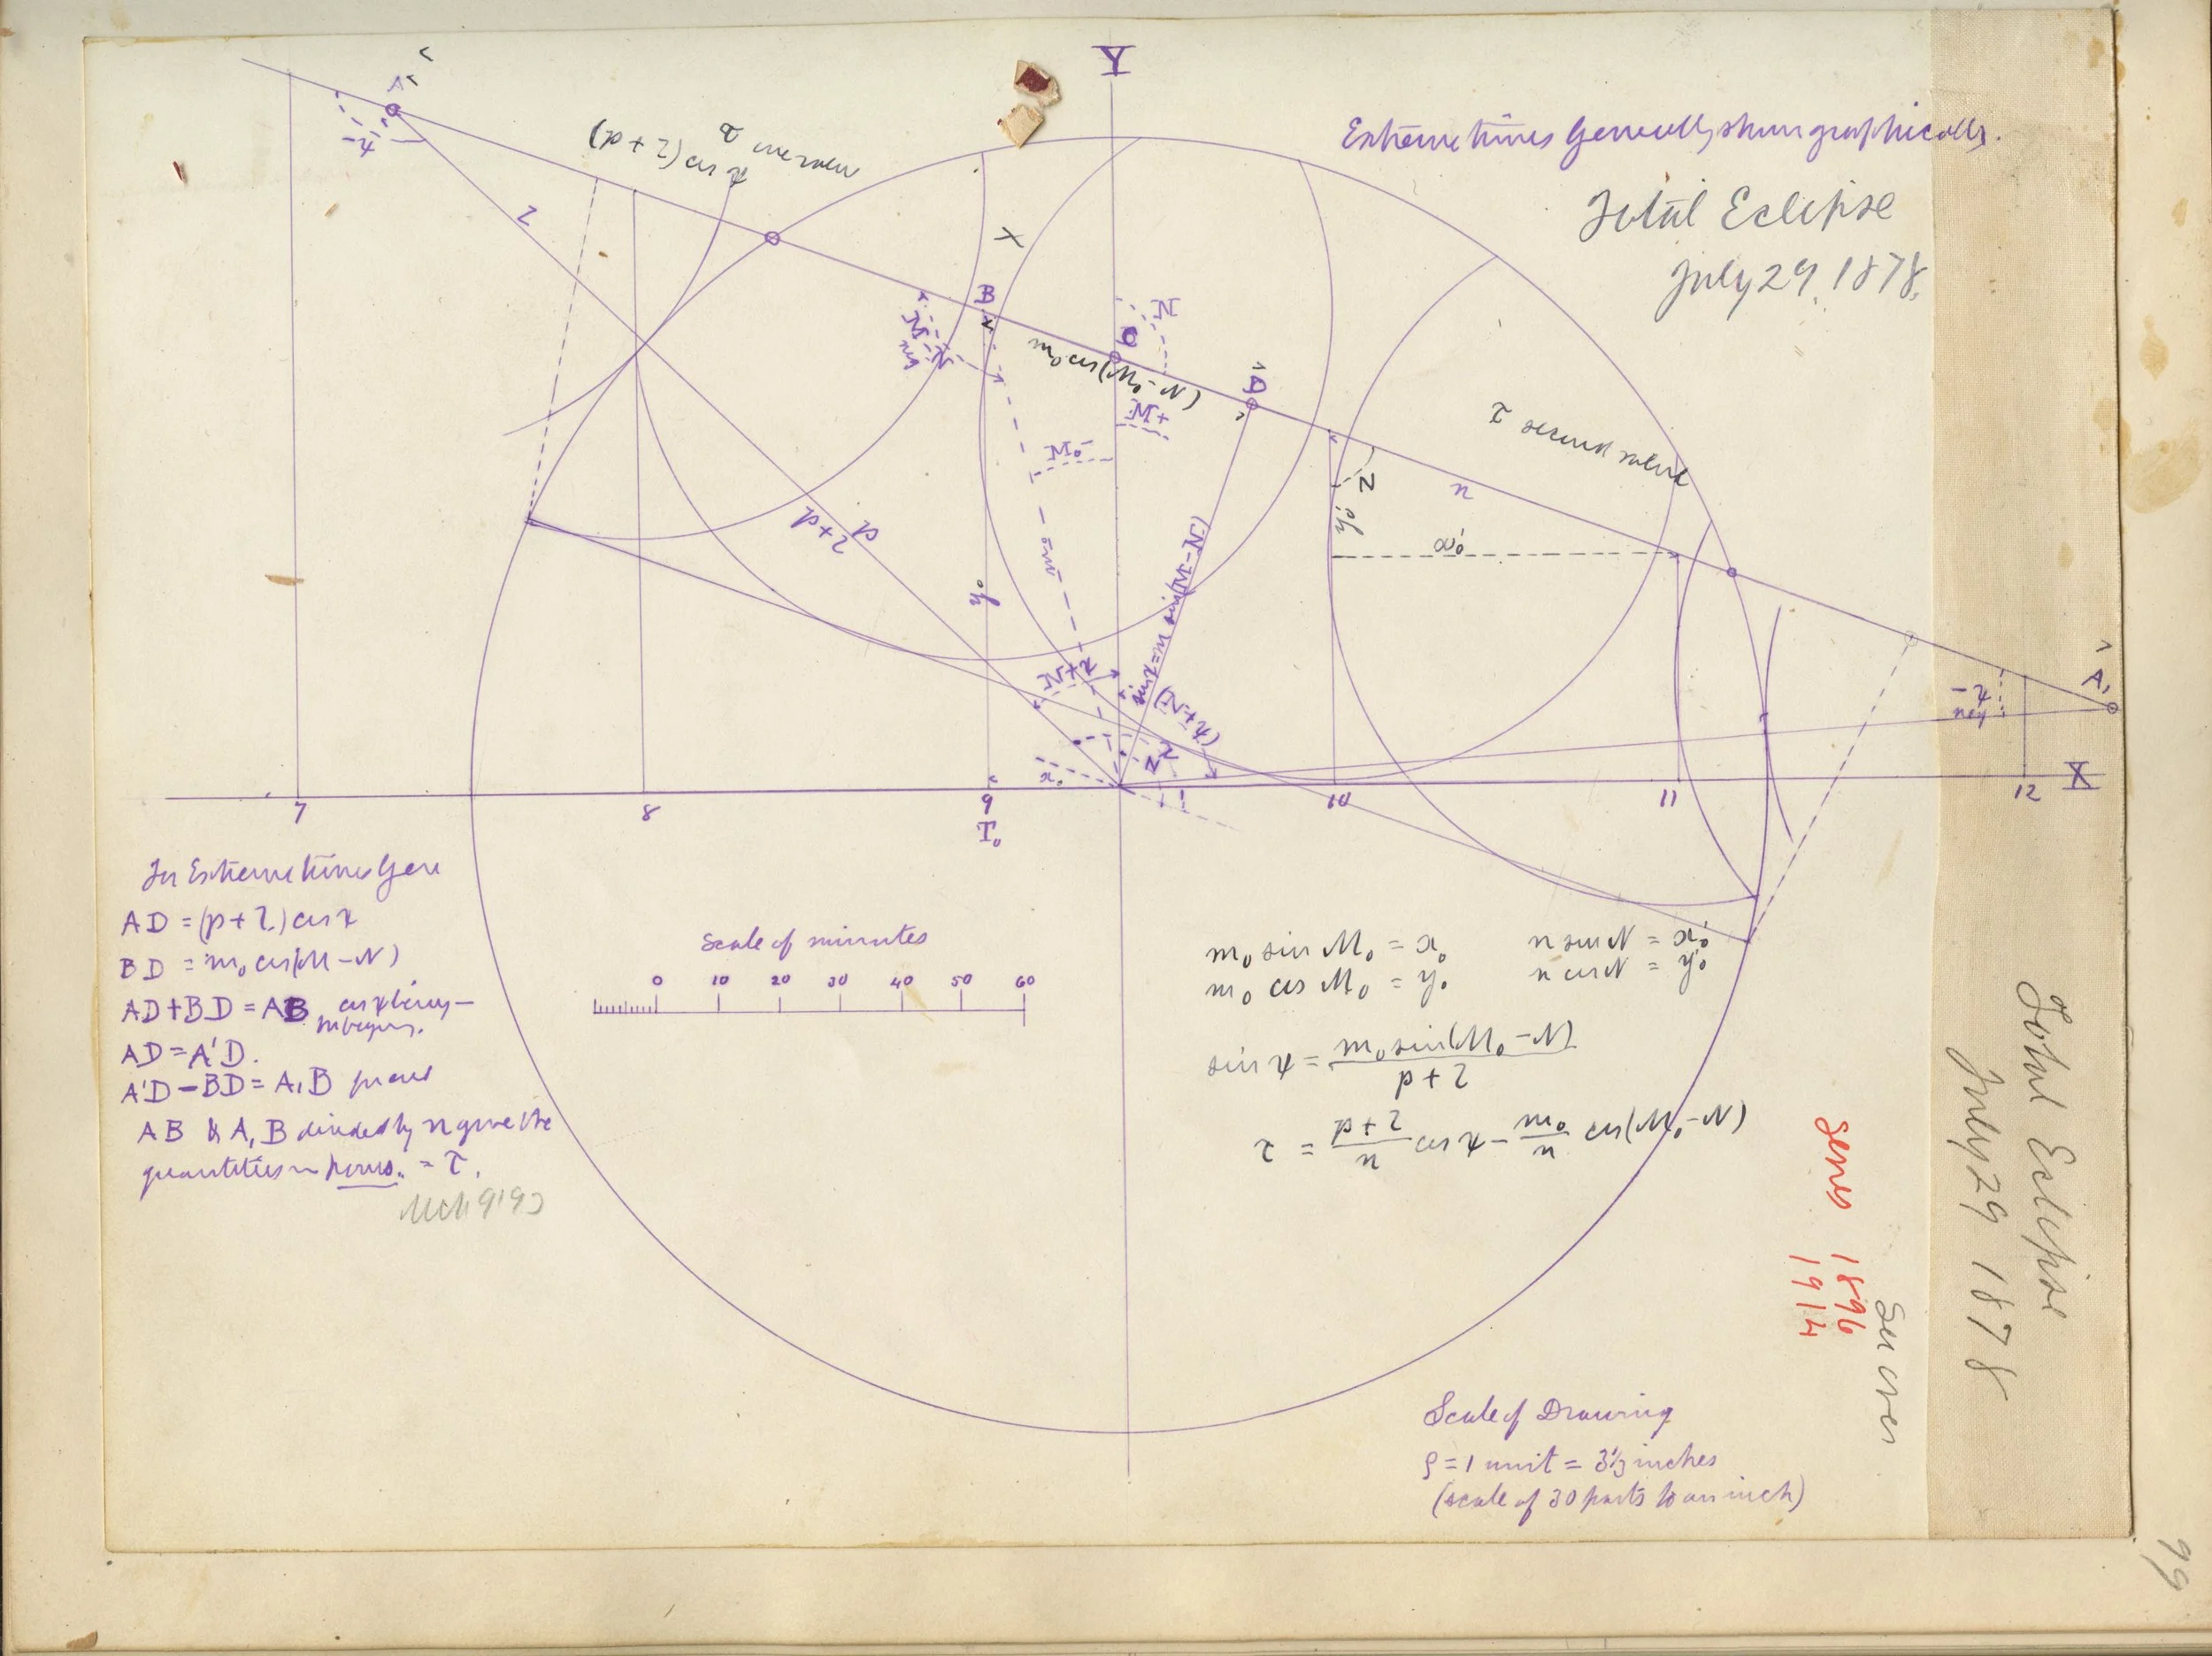 Y
Extreme times Generally shown graphically.
Total Eclipse
July 29. 1878.
A
-ψ
l
(p+l) cos ψ
τ
X
B
N
M₀
C
m₀ cos(M₀-N)
N
+N
D
-M₀
m₀
p+l
p
y₀
m sin(M-N)
N+ψ
τ second value
n
N
y'₀
x'₀
-ψ
neg
A,
x₀
7
8
9
T₀
10
11
12
X
For Extreme times Gen
AD = (p+l) cos ψ
BD = m₀ cos(M-N)
AD+BD = AB cos ψ being -
AD = A'D.
A'D - BD = A,B
AB & A, B divided by n give the
quantities in hours. = τ.
Mch 9'93
Scale of minutes
0 10 20 30 40 50 60
m₀ sin M₀ = x₀ n sin N = x'₀
m₀ cos M₀ = y₀ n cos N = y'₀
sin ψ = m₀ sin(M₀-N) / p+l
τ = p+l / n cos ψ - m₀ / n cos(M₀-N)
Scale of Drawing
ρ = 1 unit = 3⅓ inches
(scale of 30 parts to an inch)
Series 1896
1914
See over
Total Eclipse
July 29 1878
99